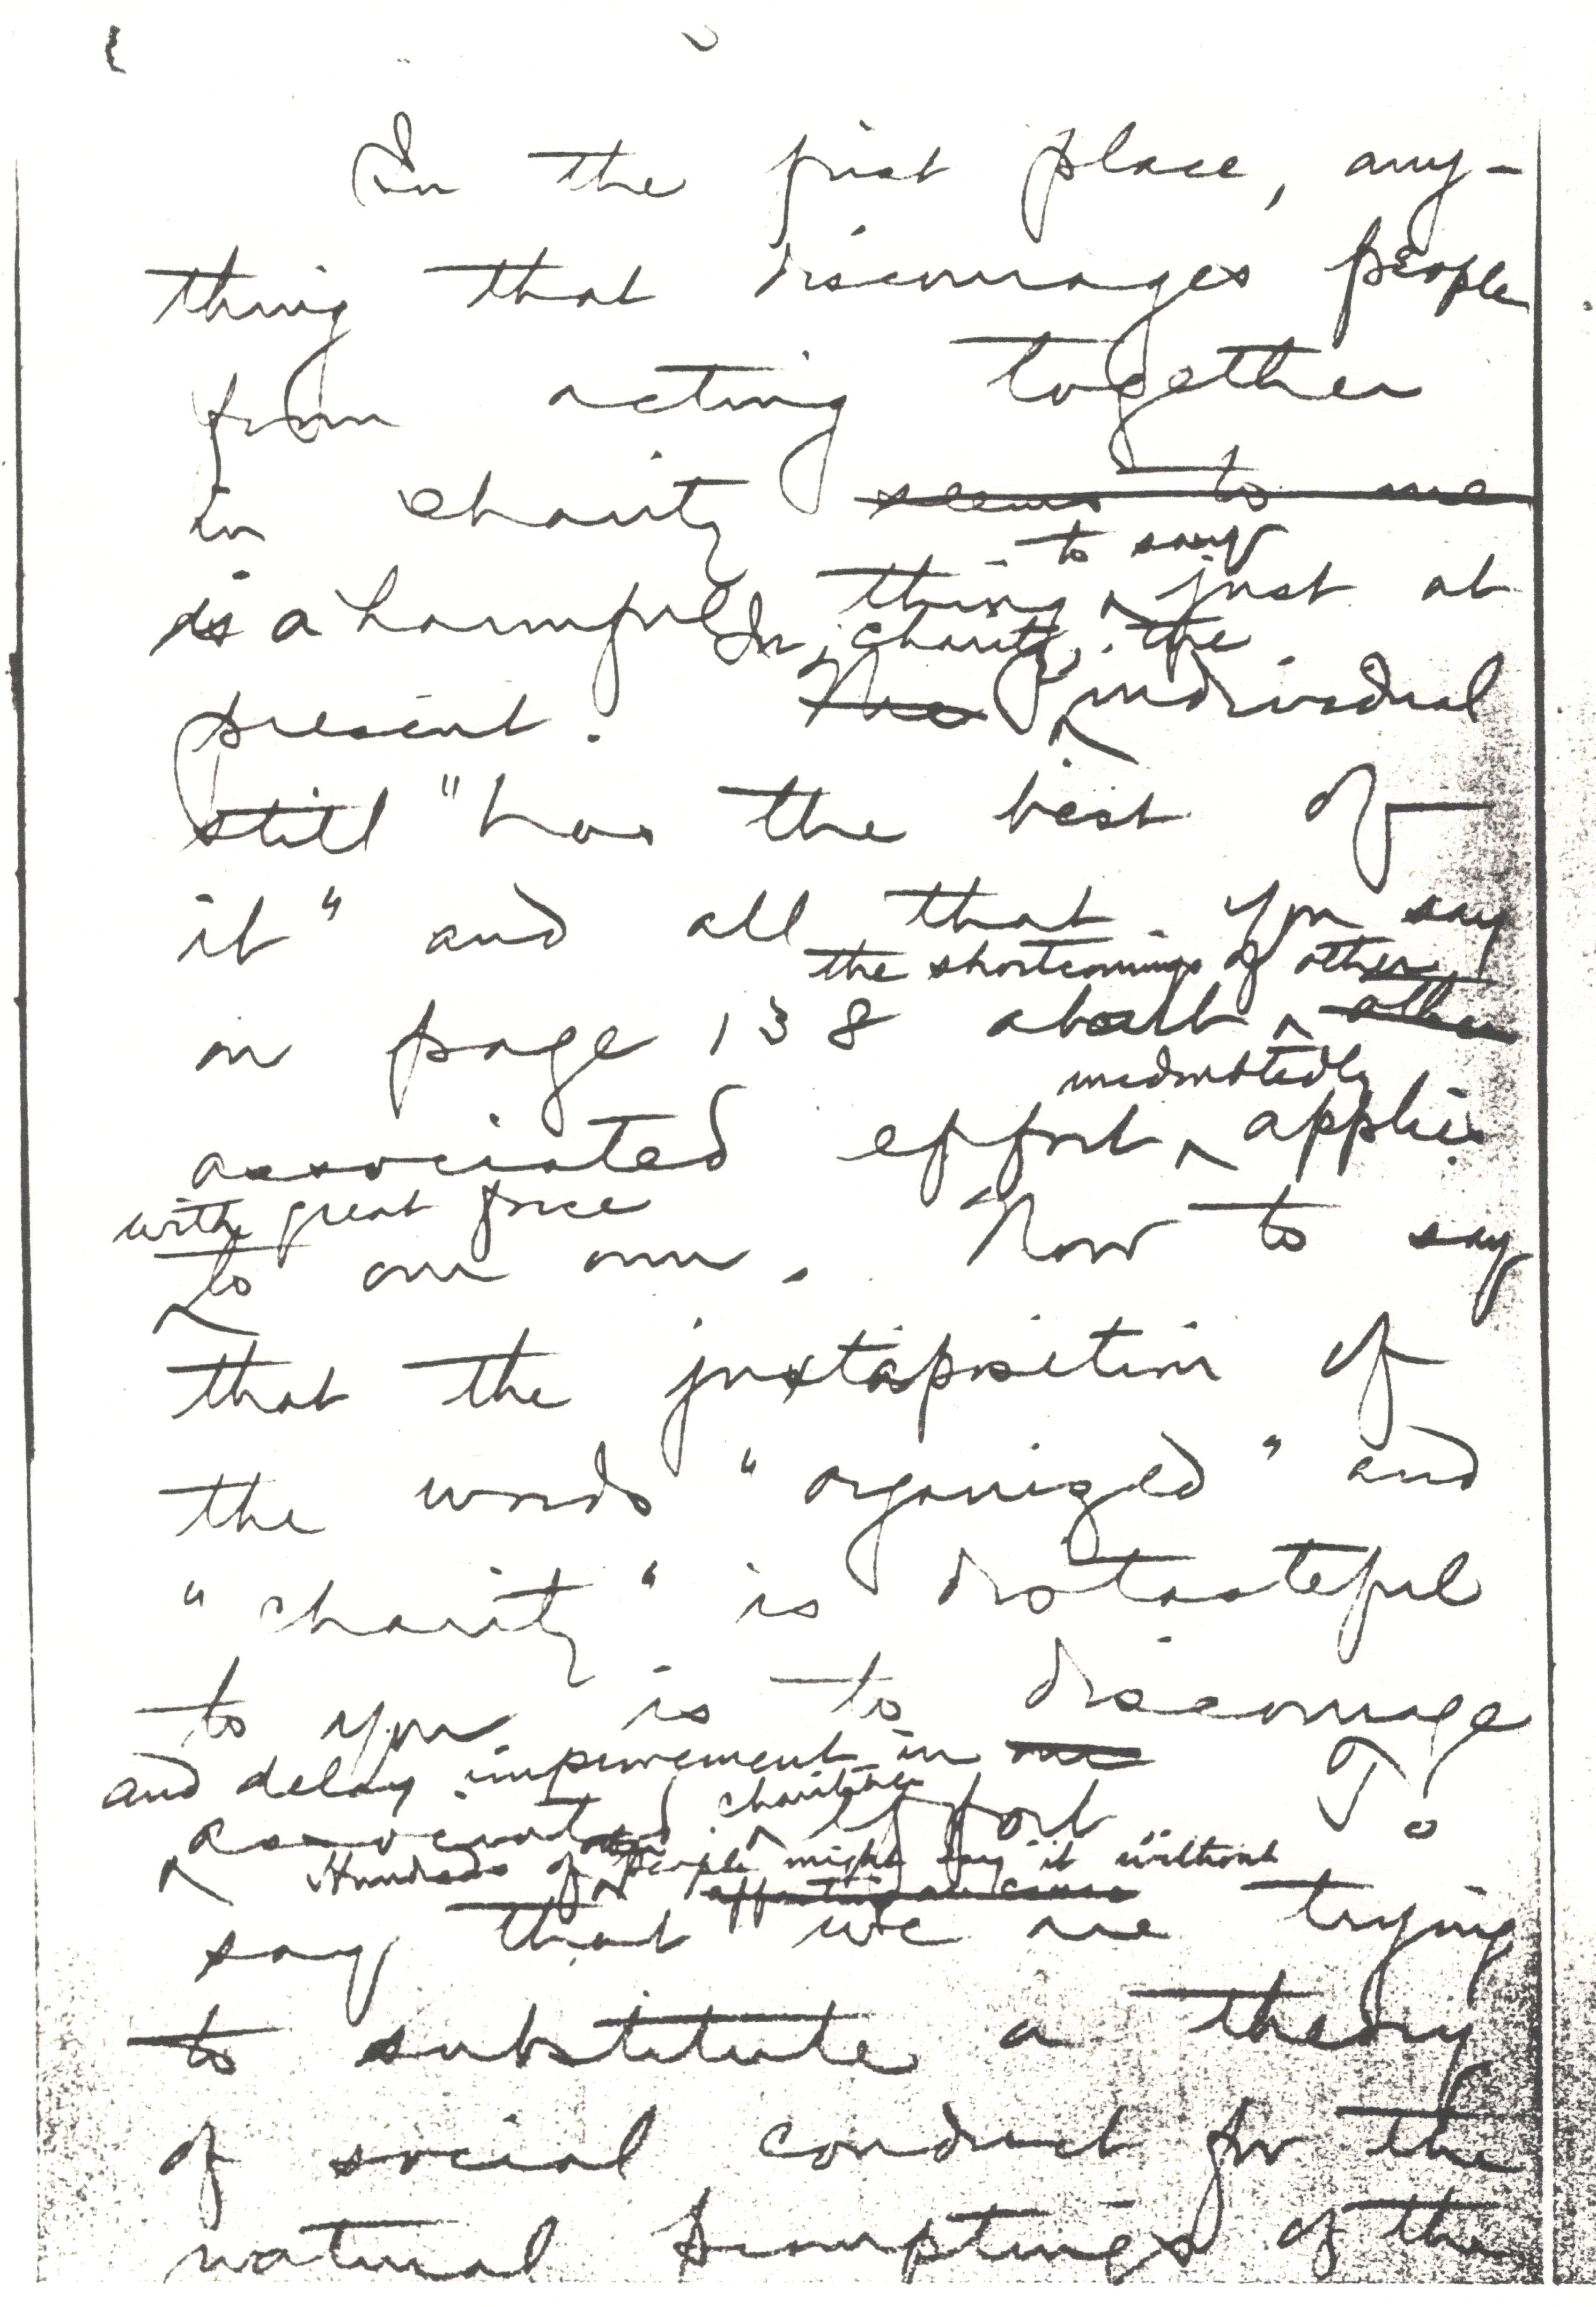 In the first place, any-
thing that discourages people
from acting together
in charity seems to me
to say
is a harmful thing just at
In charity, the
present. The individual
still "has the best of
it" and all that you say
the shortcomings of other
on page 138 about other
undoubtedly
associated effort applies
with great force
to our own. Now to say
that the juxtaposition of
the words "organized" and
"charity" is distasteful
to you is to discourage
and delay improvement in
charitable
associated effort To
Hundreds of people might say it without
say that we are trying
to substitute a theory
of social conduct for the
natural promptings of the